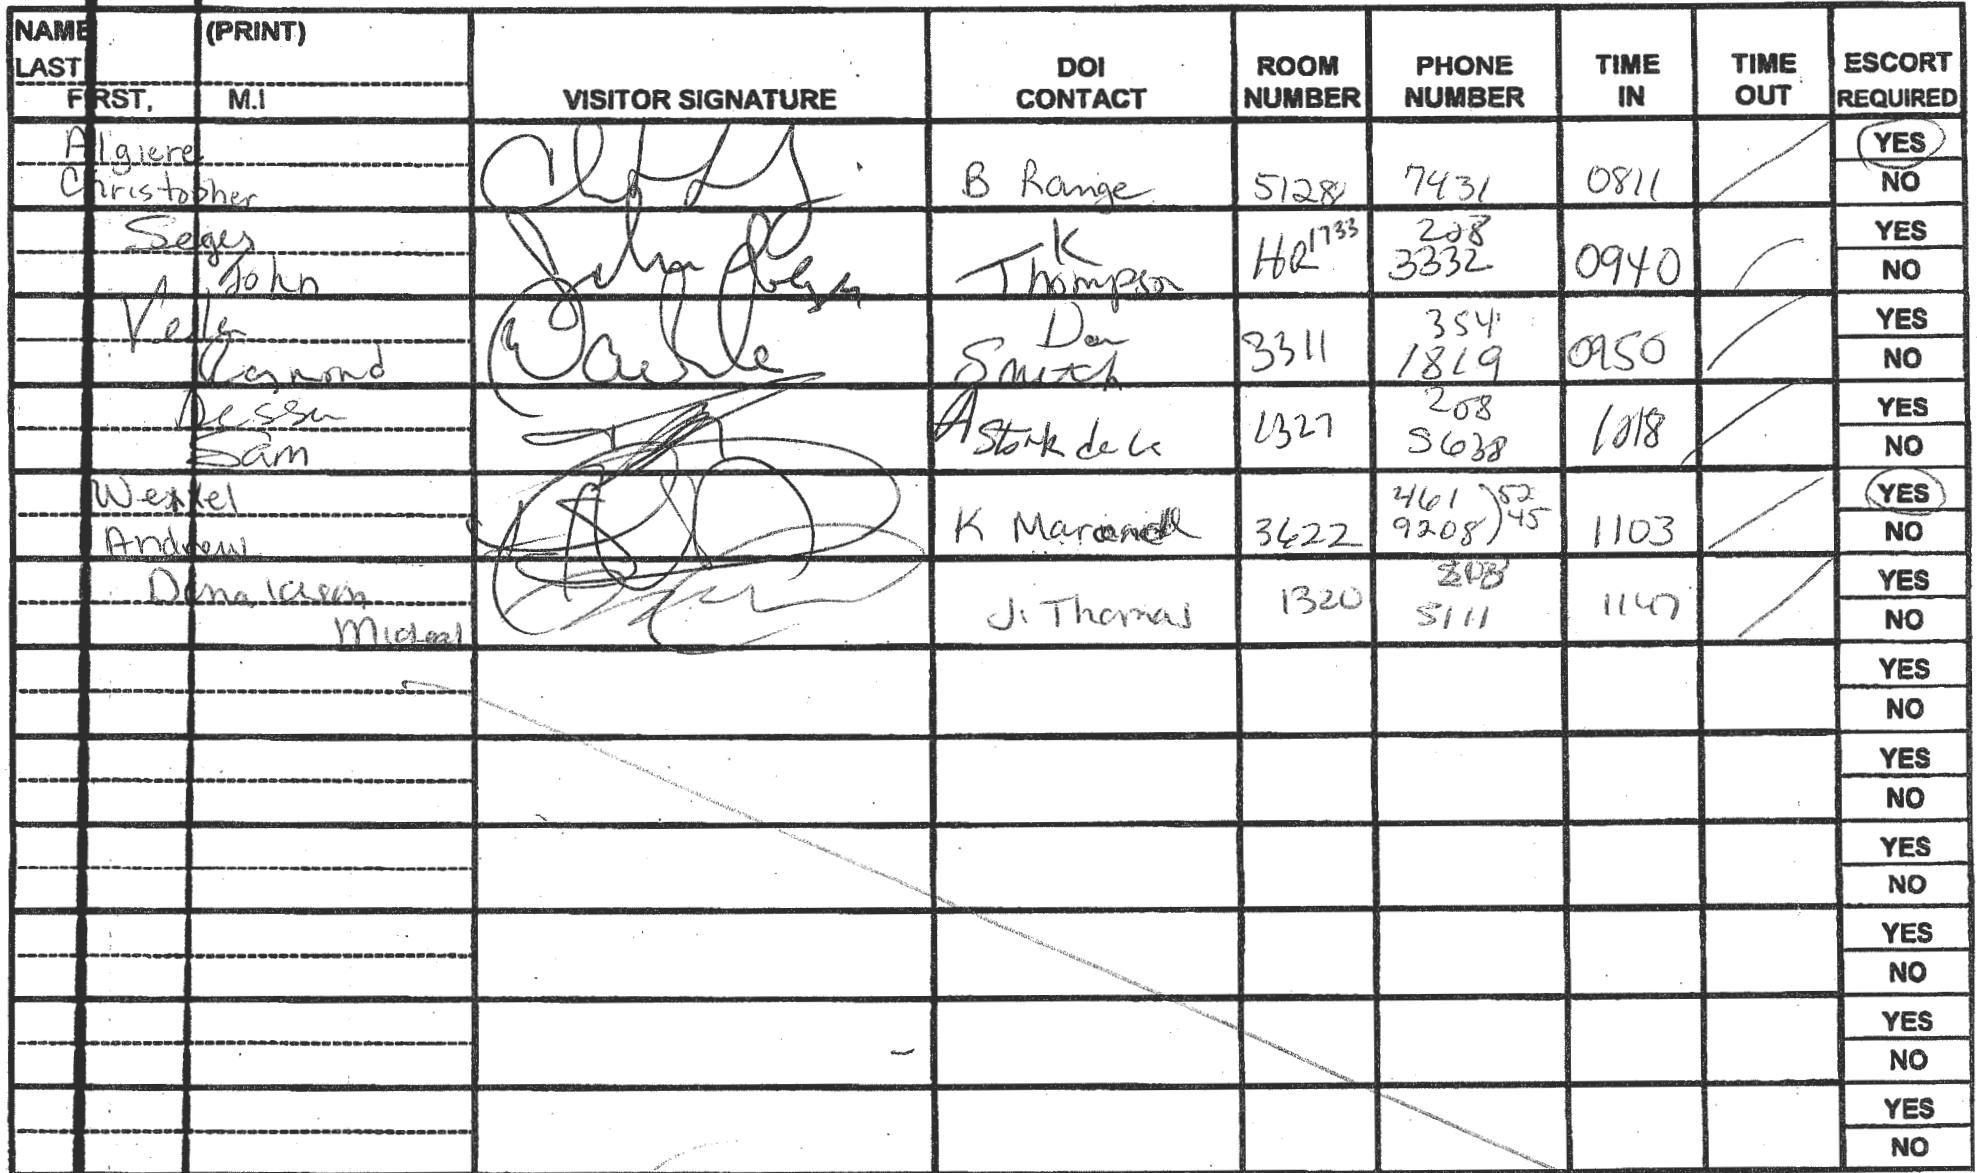 NAME (PRINT)
LAST
FIRST, M.I
VISITOR SIGNATURE
DOI CONTACT
ROOM NUMBER
PHONE NUMBER
TIME IN
TIME OUT
ESCORT REQUIRED
Algiere
Christopher
B Range 5128 7431 0811
YES
NO
Seges
John
K Thompson HR 1733 208 3332 0940
YES
NO
Dan 3311 354 1819 0950
YES
NO
Sam
A 1327 208 5638 1018
YES
NO
Andrew
K 3622 461 9208 52 45 1103
YES
NO
Donaldson
Micheal
J. Thomas 1320 5111 1147
YES
NO
YES
NO
YES
NO
YES
NO
YES
NO
YES
NO
YES
NO